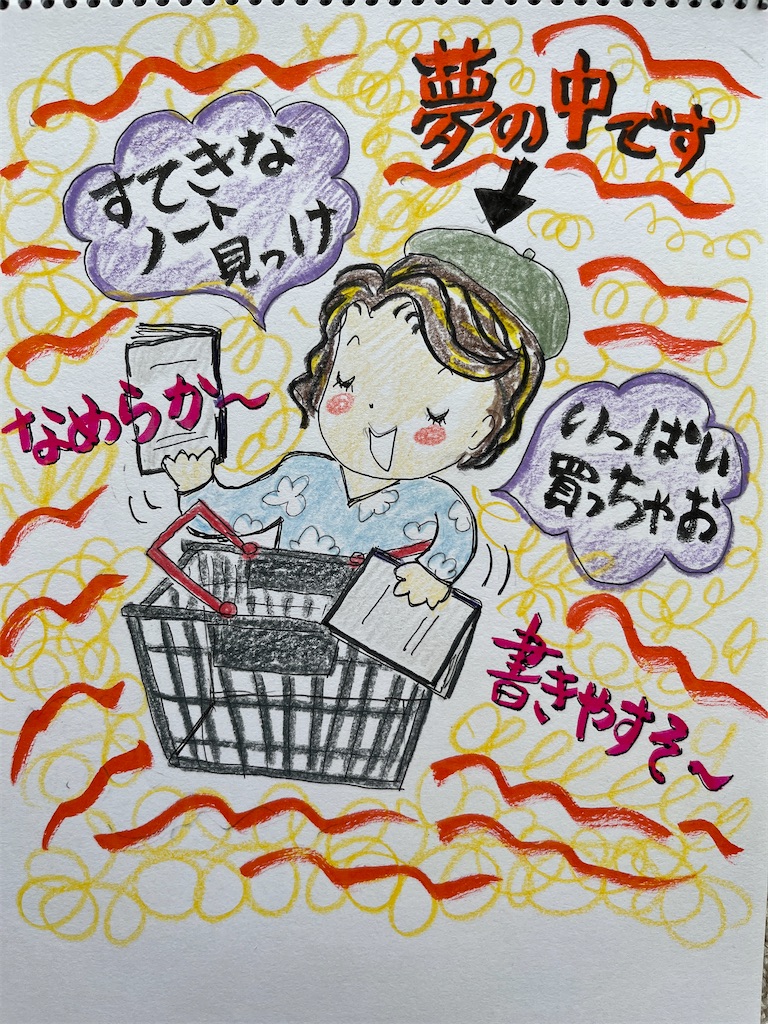 夢の中です
すてきな
ノート
見っけ
なめらか～
いっぱい
買っちゃお
書きやすそ～